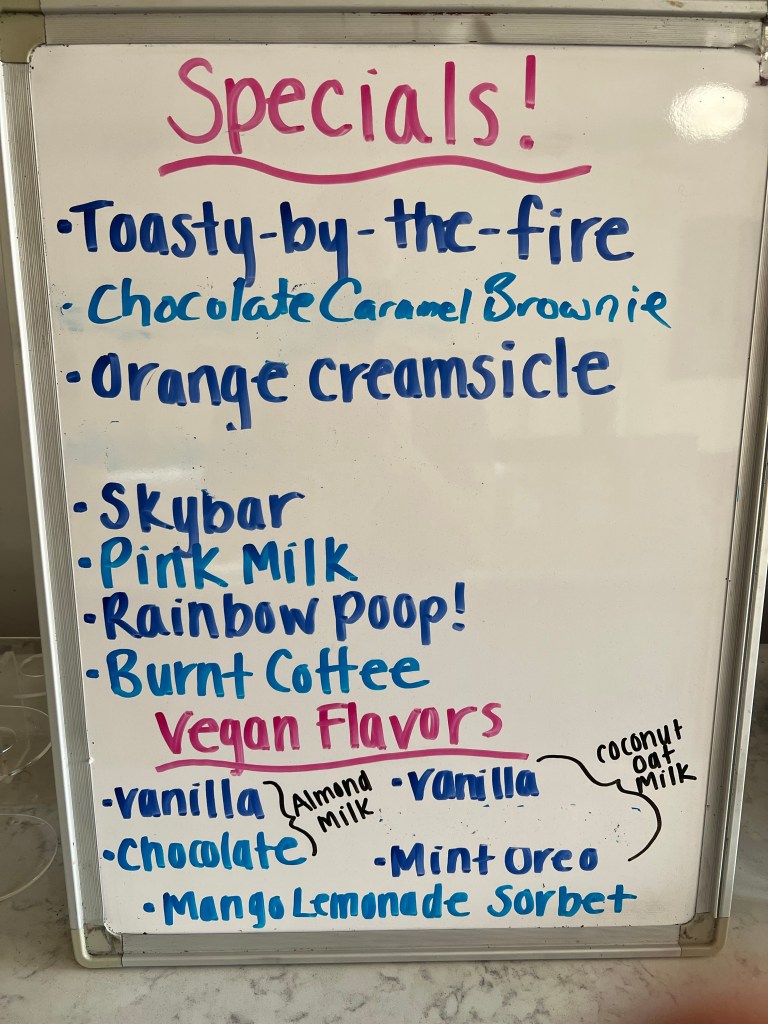 Specials!
• Toasty-by-the-fire
• Chocolate Caramel Brownie
• Orange Creamsicle
• Skybar
• Pink Milk
• Rainbow Poop!
• Burnt Coffee
Vegan Flavors
• Vanilla
• Chocolate
Almond
Milk
• Vanilla
• Mint Oreo
coconut
oat
Milk
• Mango Lemonade Sorbet